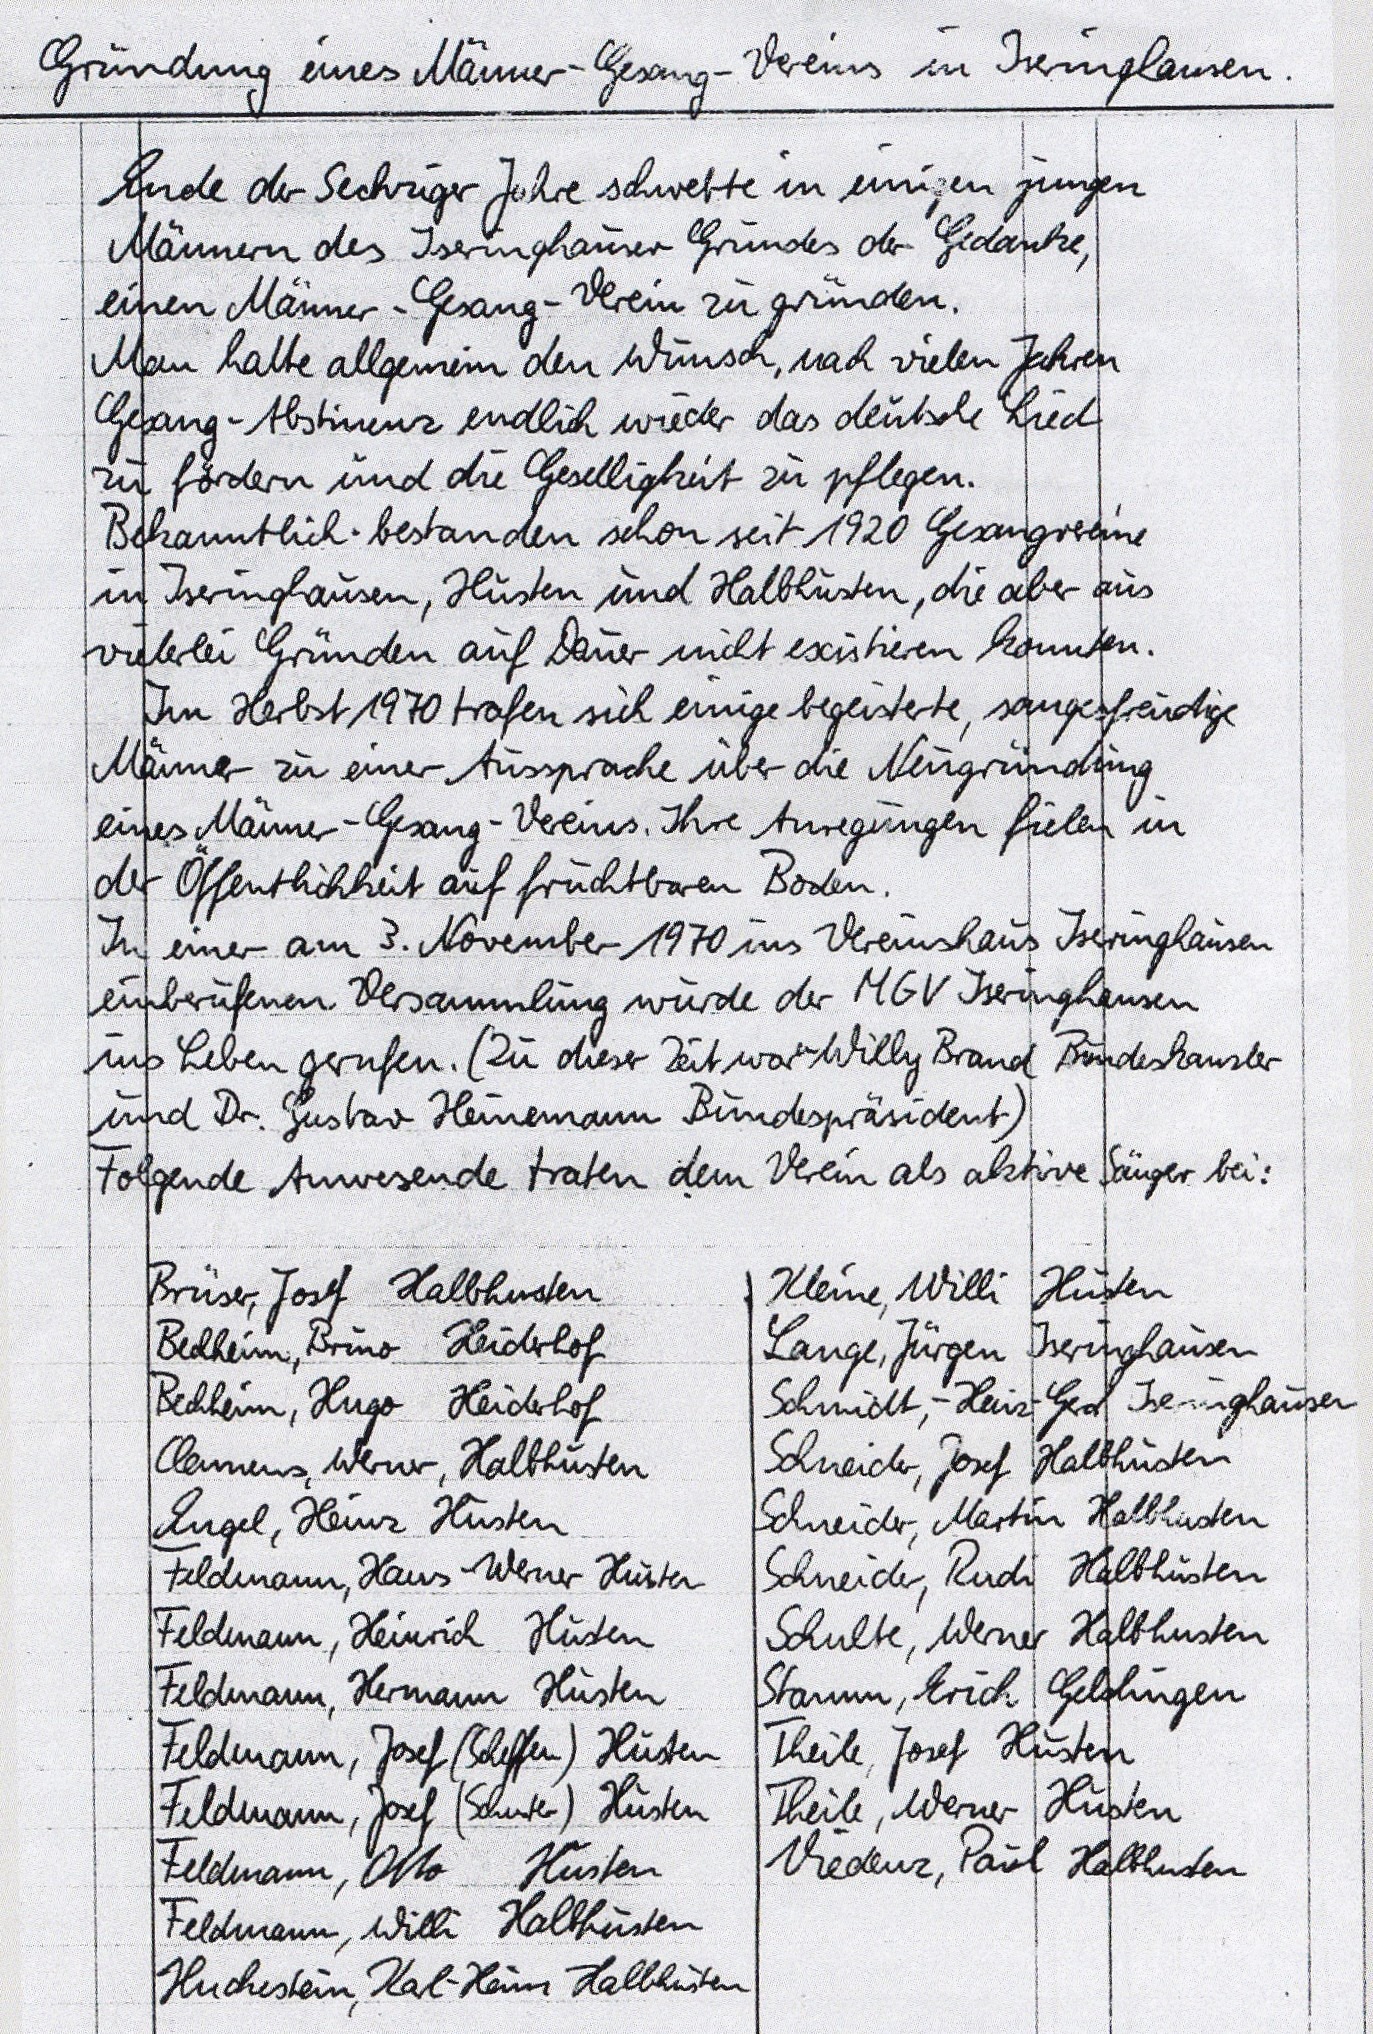 Gründung eines Männer-Gesang-Vereins in Iseringhausen.
Ende der Sechziger Jahre schwebte in einigen jungen
Männern des Iseringhauser Grundes der Gedanke,
einen Männer-Gesang-Verein zu gründen.
Man hatte allgemein den Wunsch, nach vielen Jahren
Gesang-Abstinenz endlich wieder das deutsche Lied
zu fördern und die Geselligkeit zu pflegen.
Bekanntlich bestanden schon seit 1920 Gesangvereine
in Iseringhausen, Husten und Halbhusten, die aber aus
vielerlei Gründen auf Dauer nicht existieren konnten.
Im Herbst 1970 trafen sich einige begeisterte, sangesfreudige
Männer zu einer Aussprache über die Neugründung
eines Männer-Gesang-Vereins. Ihre Anregungen fielen in
der Öffentlichkeit auf fruchtbaren Boden.
In einer am 3. November 1970 ins Vereinshaus Iseringhausen
einberufenen Versammlung wurde der MGV Iseringhausen
ins Leben gerufen. (Zu dieser Zeit war Willy Brand Bundeskanzler
und Dr. Gustav Heinemann Bundespräsident)
Folgende Anwesende traten dem Verein als aktive Sänger bei:
Brüser, Josef Halbhusten
Bechheim, Bruno Heiderhof
Bechheim, Hugo Heiderhof
Clemens, Werner, Halbhusten
Engel, Heinz Husten
Feldmann, Hans-Werner Husten
Feldmann, Heinrich Husten
Feldmann, Hermann Husten
Feldmann, Josef (Scheffen) Husten
Feldmann, Josef (Schuster) Husten
Feldmann, Otto Husten
Feldmann, Willi Halbhusten
Huckestein, Karl-Heinz Halbhusten
Kleine, Willi Husten
Lange, Jürgen Iseringhausen
Schmidt, Heinz-Gerd Iseringhausen
Schneider, Josef Halbhusten
Schneider, Martin Halbhusten
Schneider, Rudi Halbhusten
Schulte, Werner Halbhusten
Stamm, Erich Gelslingen
Theile, Josef Husten
Theile, Werner Husten
Viedenz, Paul Halbhusten